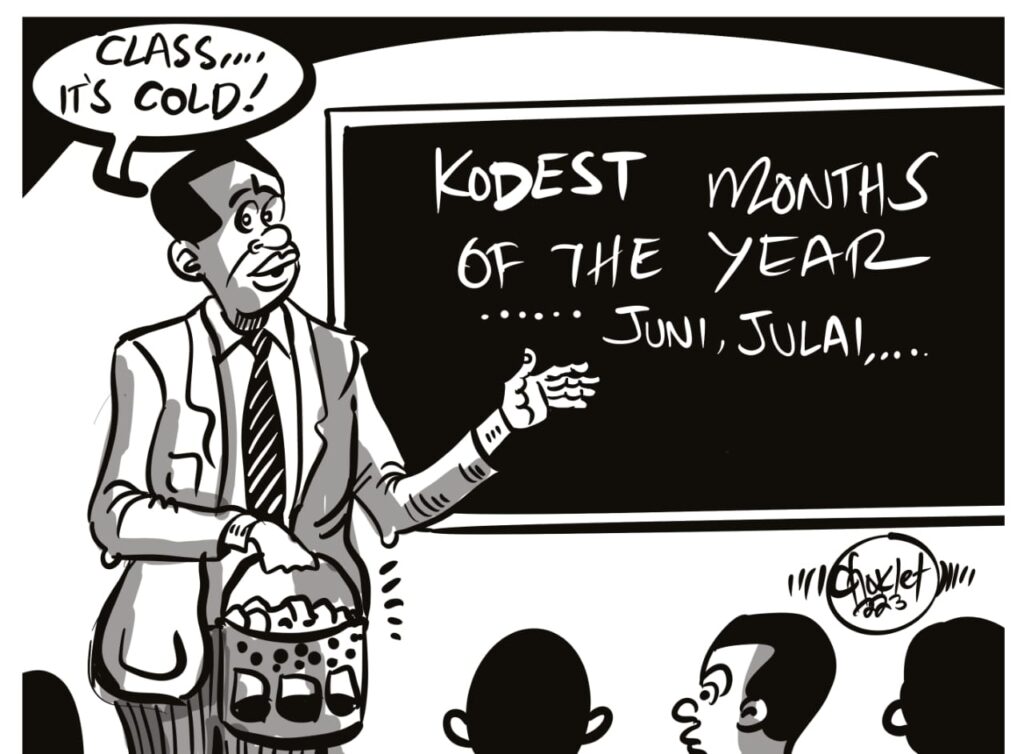 CLASS....
IT'S COLD!
KODEST MONTHS
OF THE YEAR
...... JUNI, JULAI,....
Choklet
223